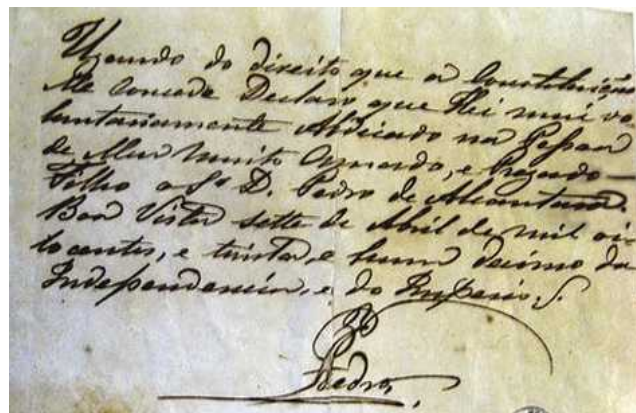 Uzando do direito que a Constituição
Me concede Declaro que Hei mui vo
luntariamente Abdicado na Pessoa
de Meu muito Amado, e Prezado
Filho o Sr. D. Pedro de Alcantara.
Boa Vista sette de Abril de mil oi
to centos, e trinta, e hum decimo da
Independencia, e do Imperio.
Pedro